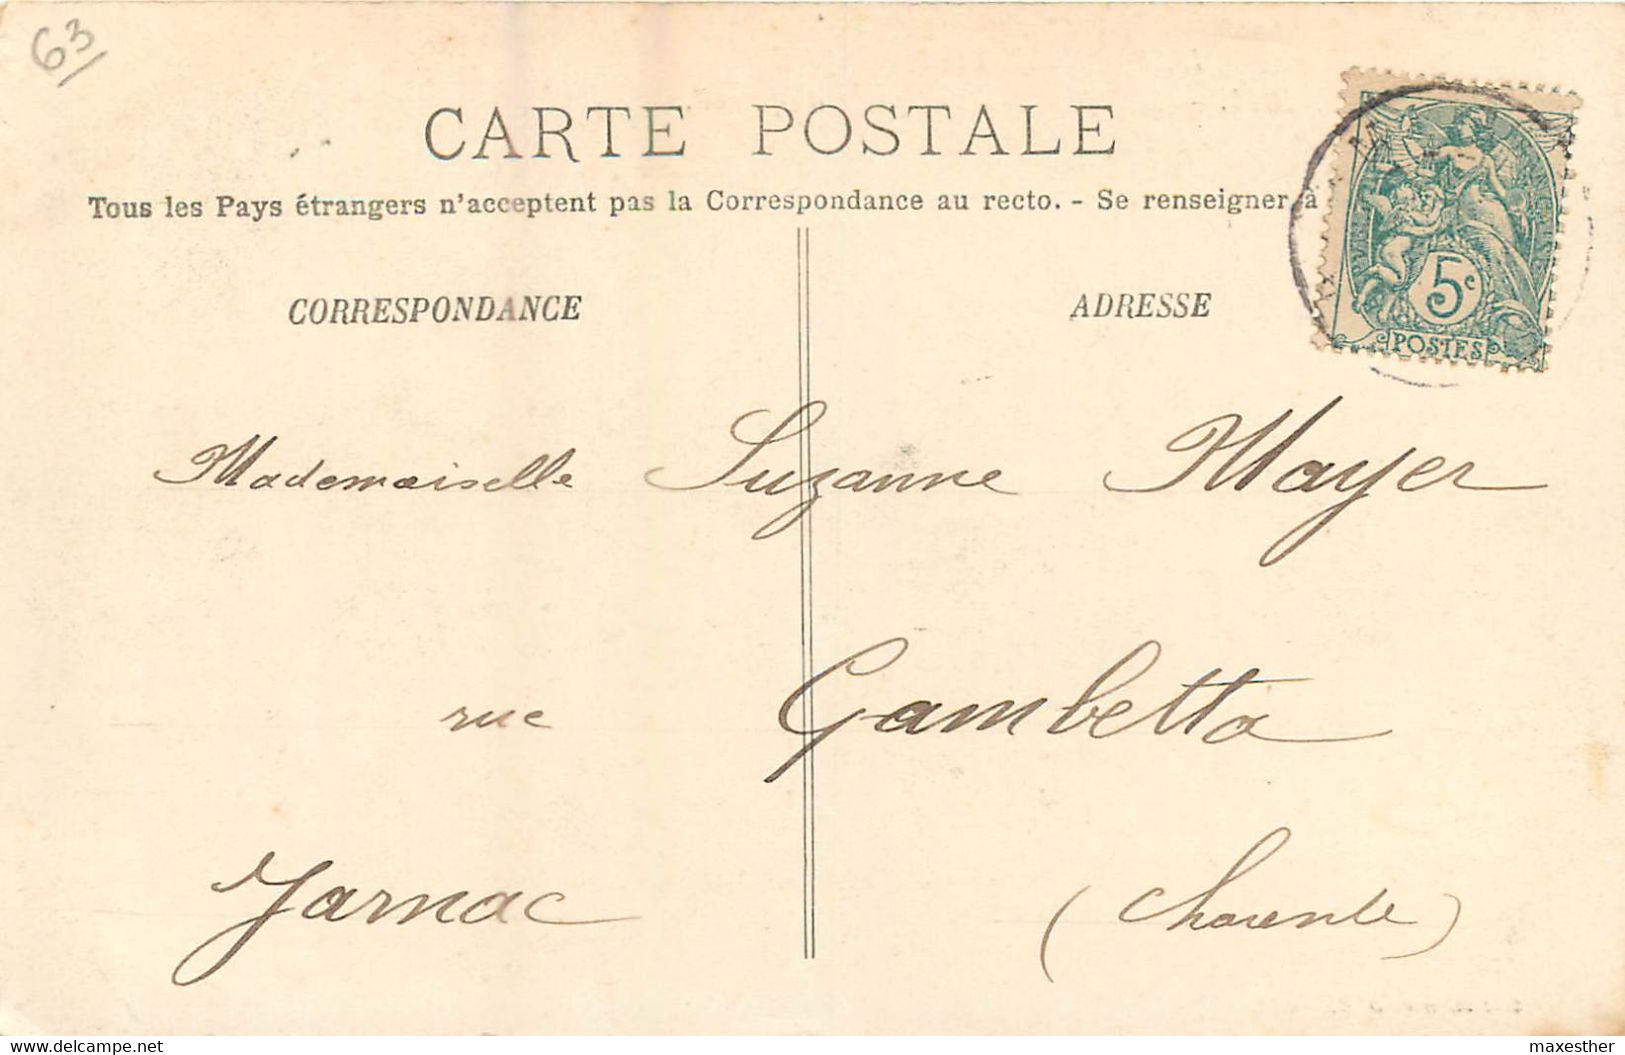 63
CARTE POSTALE
Tous les Pays étrangers n'acceptent pas la Correspondance au recto. - Se renseigner à
CORRESPONDANCE
ADRESSE
5c
POSTES
Mademoiselle Suzanne Mayer
rue Gambetta
Jarnac (Charente)
www.delcampe.net
maxesther